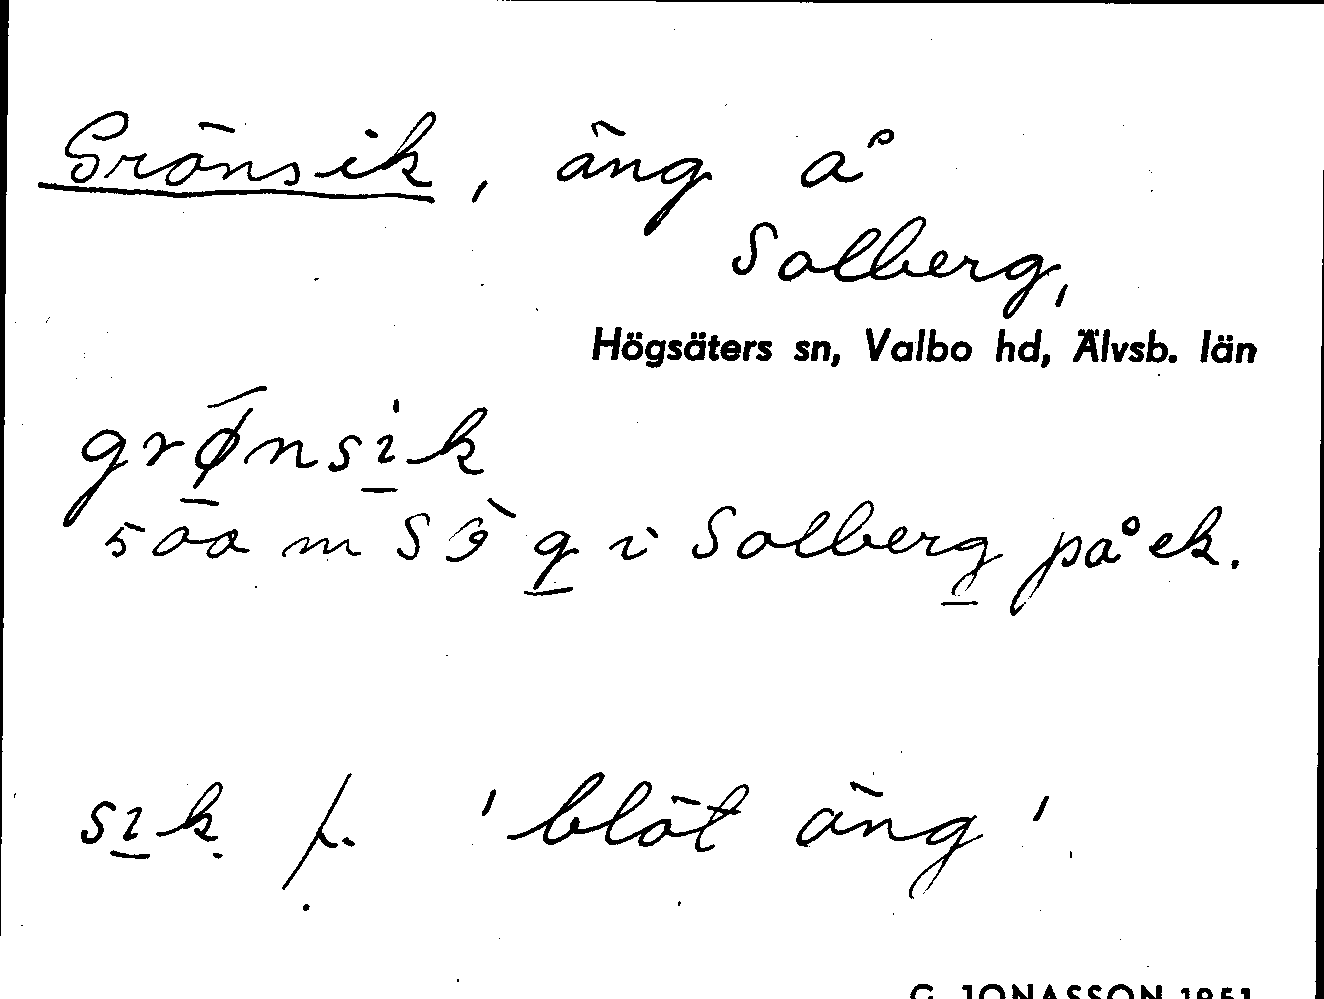 Grönsik, äng å
Solberg,
Högsäters sn, Valbo hd, Älvsb. län
grø̄nsik
500 m SÖ g i Solberg på ek.
sik f. 'blöt äng'
G. JONASSON 1951